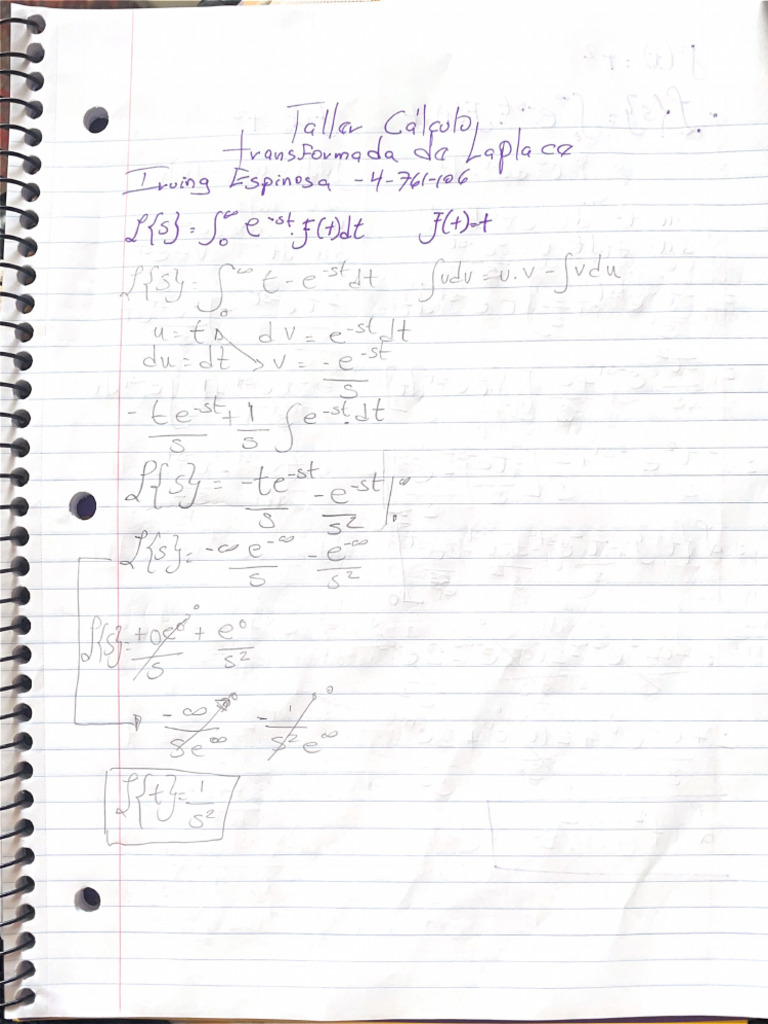 Taller Cálculo
transformada de Laplace
Irving Espinosa - 4-761-106
ℒ{s} = ∫₀^∞ e^-st . f(t)dt    f(t)=t
ℒ{s} = ∫₀^∞ t - e^-st dt    ∫udv = u.v - ∫vdu
u = t    dv = e^-st dt
du = dt → v = -e^-st/s
- te^-st/s + 1/s ∫ e^-st . dt
ℒ{s} = -te^-st/s - e^-st/s² |₀^∞
ℒ{s} = -∞ e^-∞/s - e^-∞/s²
ℒ{s} = +0e^0/s ⁰ + e^0/s²
-∞/se^∞ ⁰ - 1/s²e^∞ ⁰
ℒ{t} = 1/s²